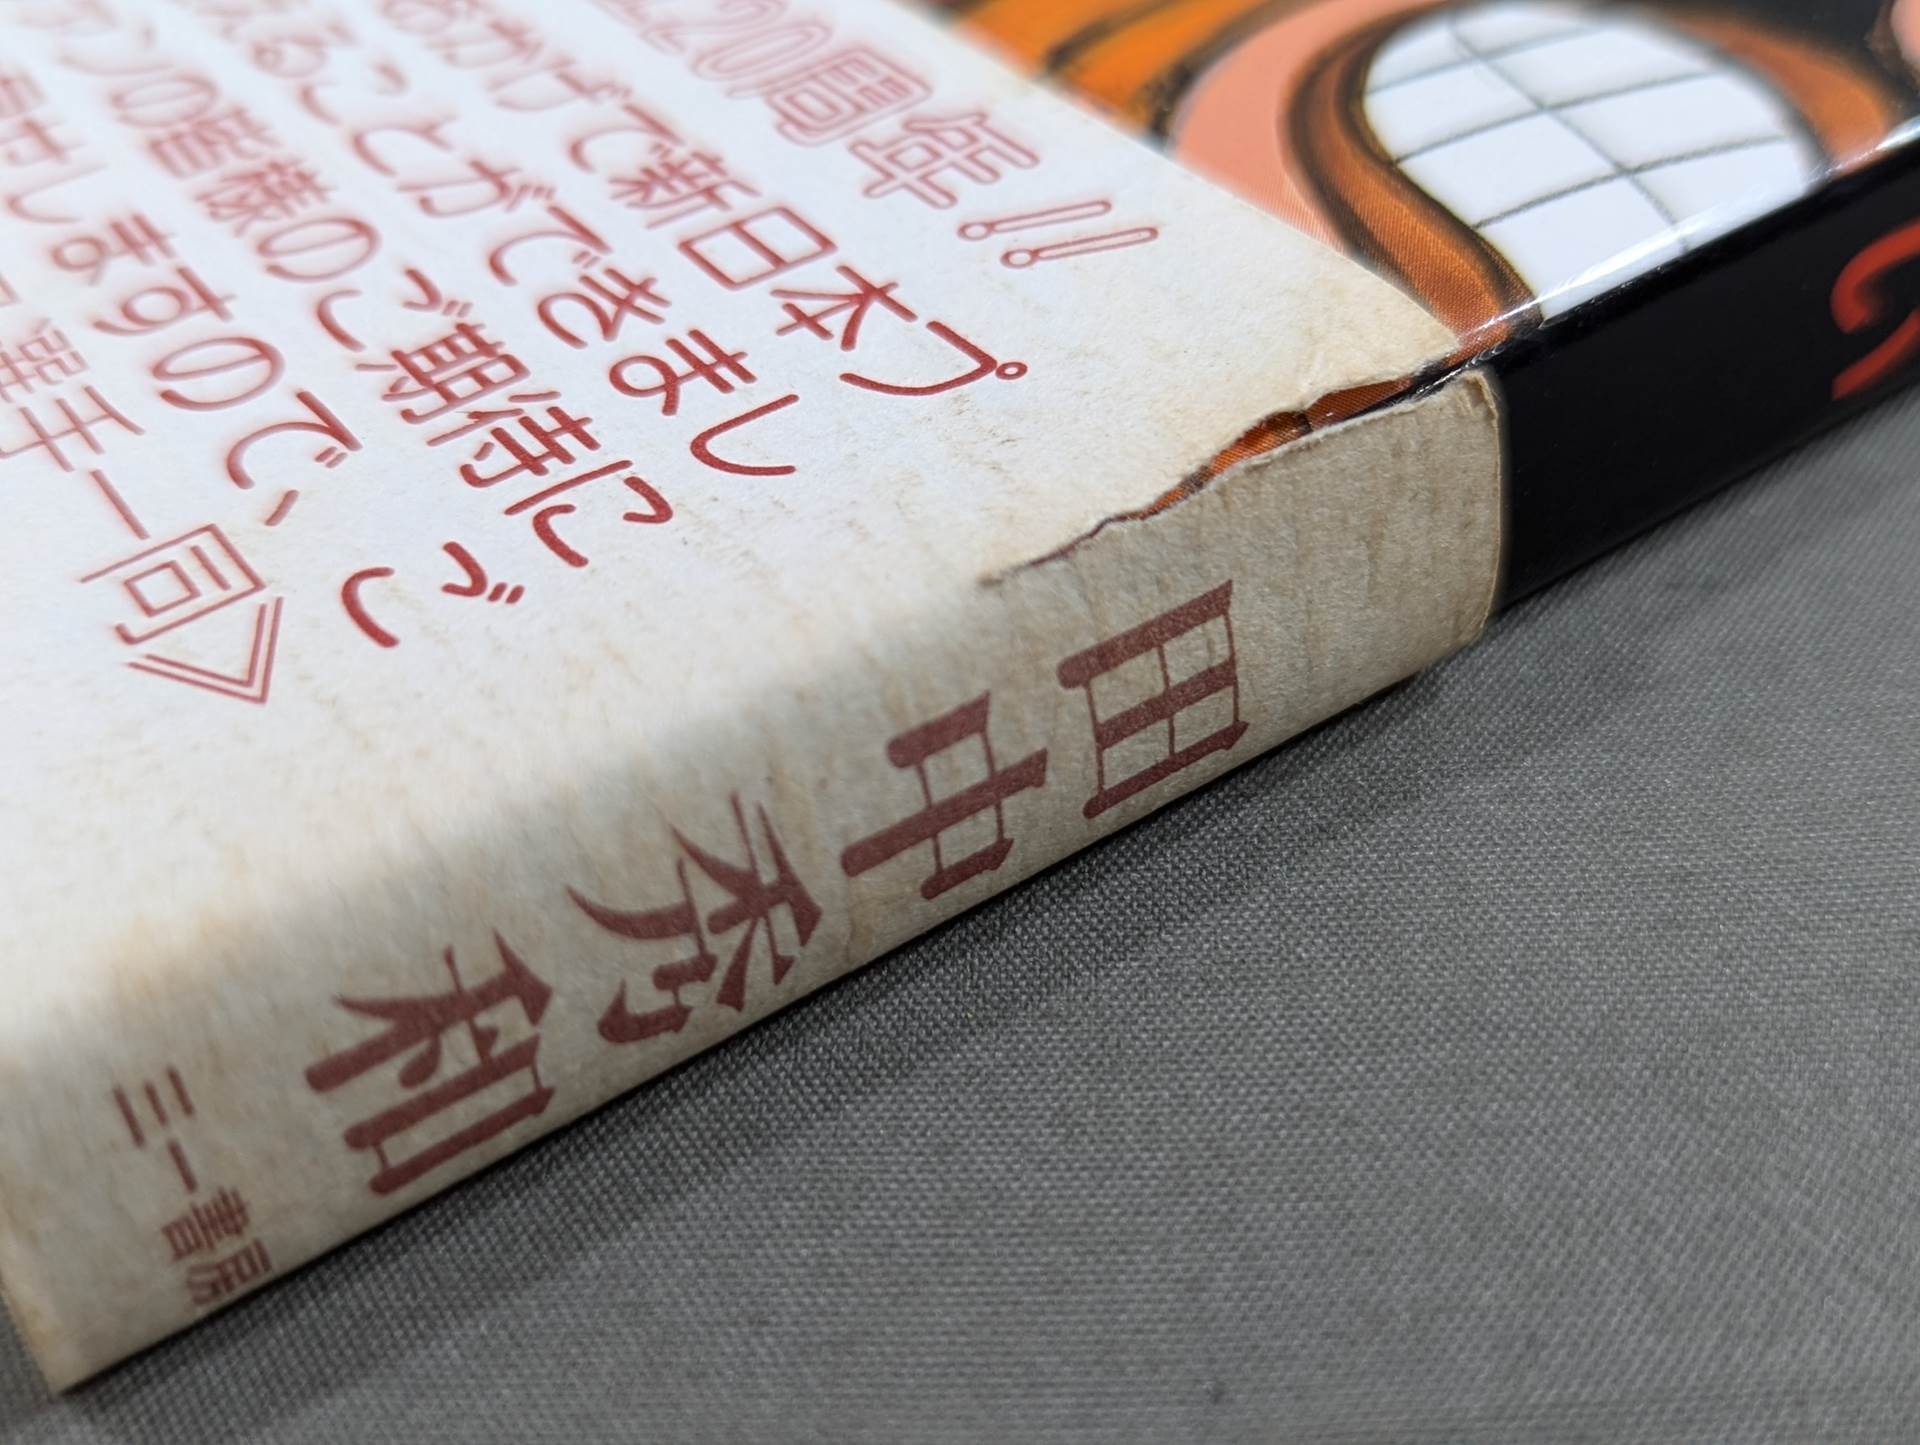 20周年!!
おかげで新日本プ
えることができまし
ァンの皆様のご期待に
しますので、ご
選手一同》
田中秀和
三一書房